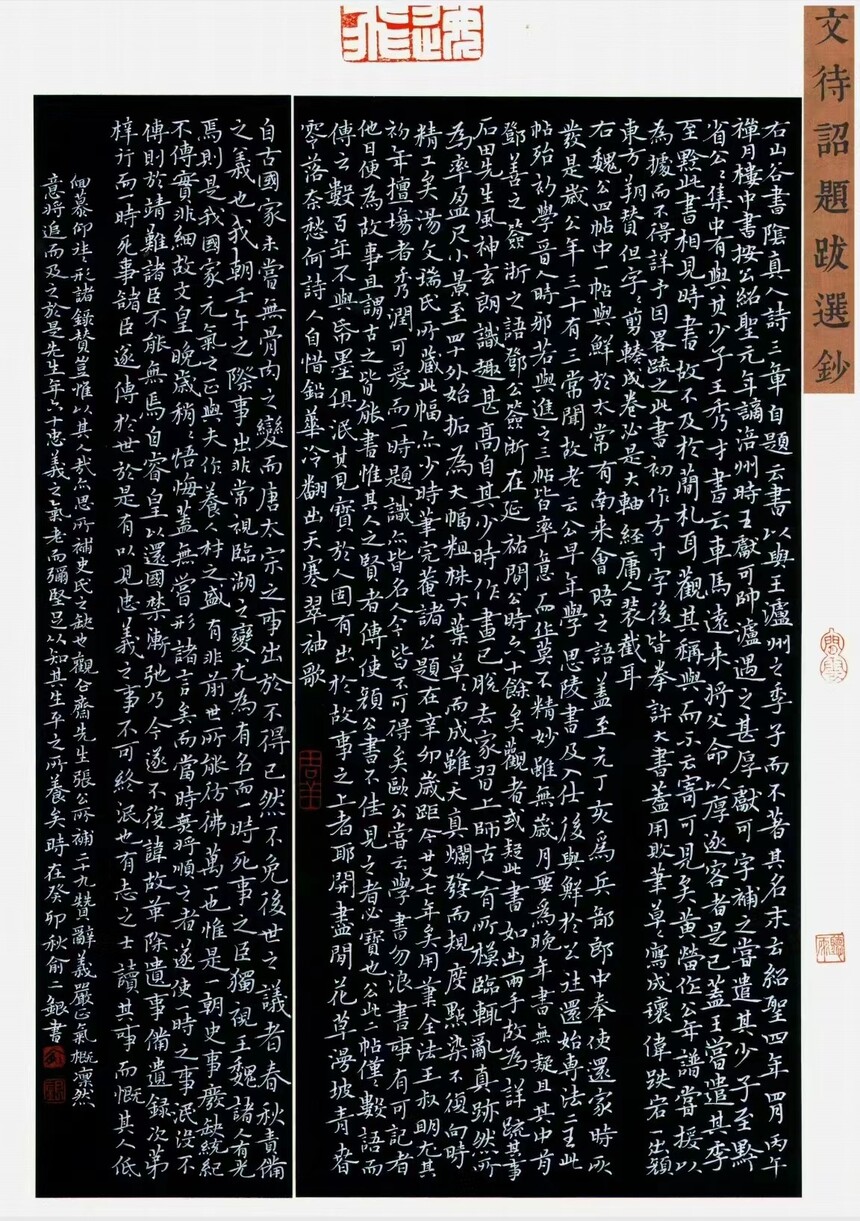 文待詔題跋選鈔
右山谷書陰真人詩三章自題云書以與王瀘州之季子而不著其名末云紹聖四年四月丙午
禪月樓中書按公紹聖元年謫涪州時王獻可帥瀘遇之甚厚獻可字補之嘗遣其少子至黔
省公公集中有與其少子王秀才書云車馬遠來將父命以厚逐客者是已蓋王嘗遣其季
至黔此書相見時書故不及於蕑札耳觀其稱與而不云寄可見矣黄㽦作公年譜嘗援以
為據而不得詳予因畧疏之此書初作方寸字後皆拳許大書蓋用敗筆草草寫成瓌偉跌宕出顏
東方朔賛但字字剪轃成卷必是大軸經庸人裝截耳
右魏公四帖中一帖與鮮於太常有南来會晤之語蓋至元丁亥為兵部郎中奉使還家時所
發是歲公年三十有三常聞故老云公早年學思陵書及入仕後與鮮於公往還始専法二王此
帖殆初學晉人時邪若與進之三帖皆率意而作莫不精妙雖無歲月要為晚年書無疑且其中有
鄧善之簽浙之語鄧公簽浙在延祐間公時六十餘矣觀者或疑此書如出兩手故為詳疏其事
石田先生風神玄朗識趣甚高自其少時作畫已脱去家習上師古人有所模臨輒亂真跡然所
為率盈尺小景至四十外始拓為大幅粗株大葉草草而成雖天真爛發而規度點染不復向時
精工矣湯文瑞氏所藏此幅亦少時筆完菴諸公題在辛卯歲距今廿又七年矣用筆全法王叔明尤其
初年擅塲者秀潤可愛而一時題識亦皆名人今皆不可得矣歐公嘗云學書勿浪書事有可記者
他日便為故事且謂古之皆能書惟其人之賢者傳使顔公書不佳見之者必寶也公此二帖僅僅數語而
傳之數百年不與帋墨俱泯其見寶於人固有出於故事之上者耶開盡閒花草漫坡青春
零落奈愁何詩人自惜鉛華冷翻出天寒翠袖歌
自古國家未嘗無骨肉之變而唐太宗之事出於不得已然不免後世之議者春秋責備
之義也我朝壬午之際事出非常視臨湖之變尤為有名而一時死事之臣獨視王魏諸人有光
焉則是我國家元氣之正與夫作養人材之盛有非前世所能彷彿萬一也惟是一朝史事廢缺統紀
不傳實非細故文皇晚歲稍稍悟悔蓋無嘗形諸言矣而當時無將順之者遂使一時之事泯没不
傅則於靖難諸臣不能無焉自睿皇以還國禁漸弛乃今遂不復諱故革除遺事備遺錄次第
梓行而一時死事諸臣遂傳於世於是有以見忠義之事不可終泯也有志之士讀其事而慨其人低
佪慕仰往往形諸錄賛豈惟以其人哉亦思所補史氏之缺也觀谷齋先生張公所補二十九贊辭義嚴正氣概凛然
意將追而及之於是先生年六十忠義之氣老而彌堅足以知其生平之所養矣時在癸卯秋俞二銀書